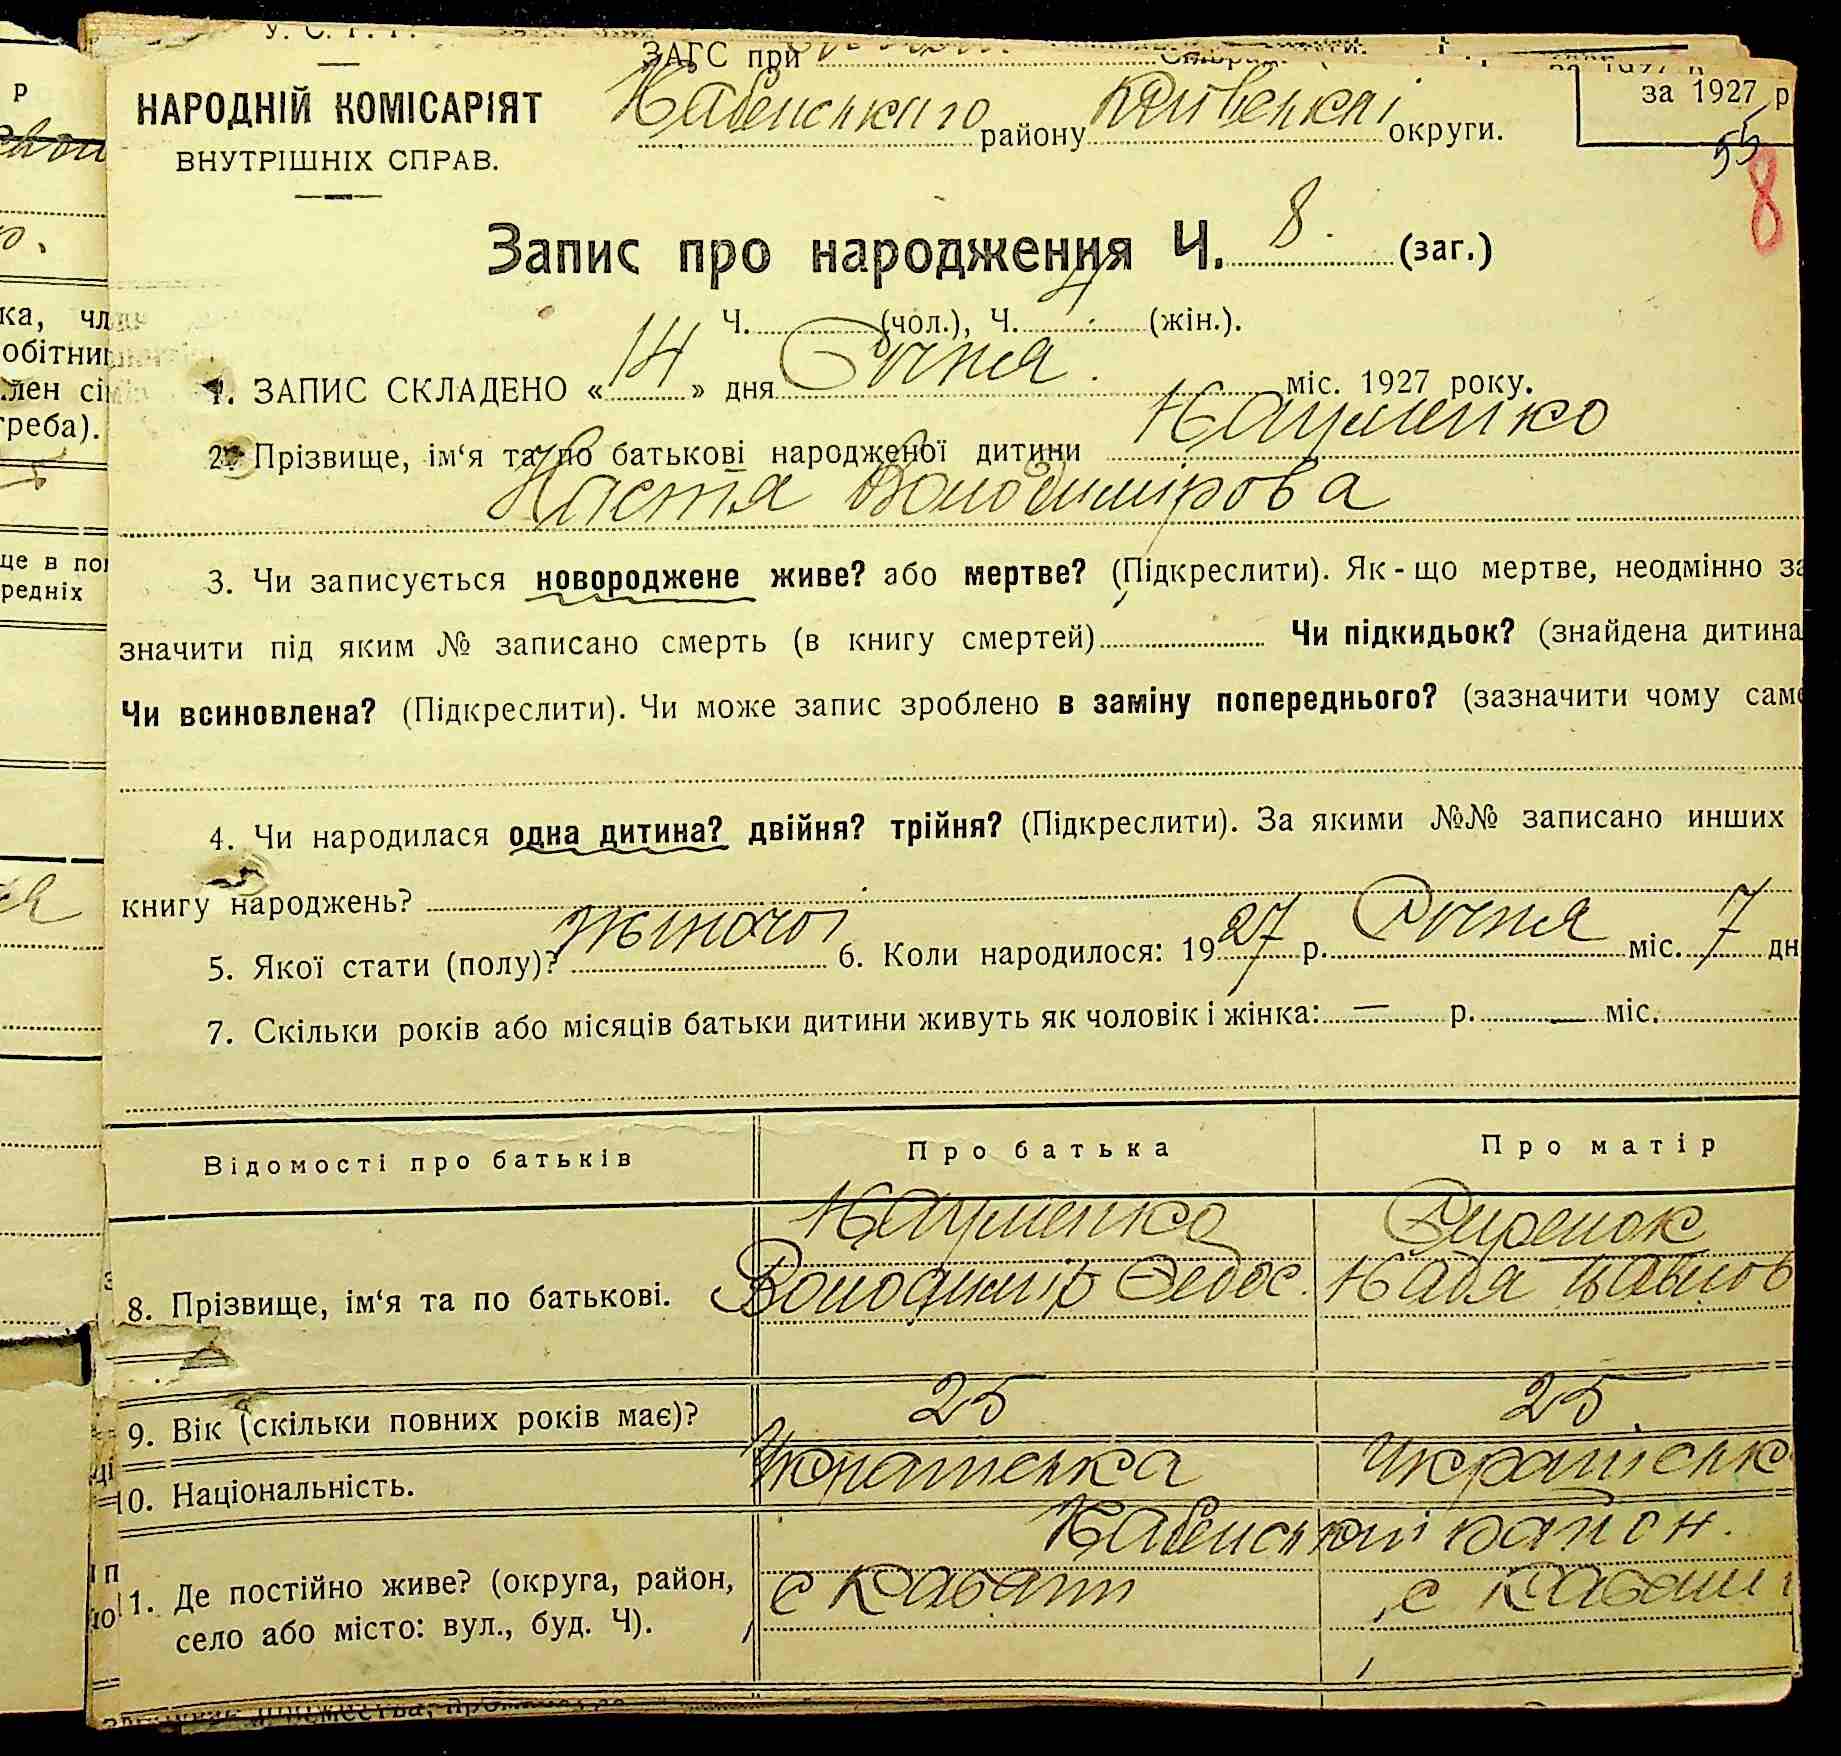 У. С. Р. Р.
ЗАГС при
НАРОДНІЙ КОМІСАРІЯТ
ВНУТРІШНІХ СПРАВ.
Кабенського району Київської округи.
за 1927 р
55
8
Запис про народження Ч. 8. (заг.)
Ч. (чол.), Ч. 4 (жін.).
1. ЗАПИС СКЛАДЕНО « 14 » дня Січня міс. 1927 року.
2. Прізвище, ім‘я та по батькові народженої дитини Науменко
Настя Володимірова
3. Чи записується новороджене живе? або мертве? (Підкреслити). Як-що мертве, неодмінно за
значити під яким № записано смерть (в книгу смертей) Чи підкидьок? (знайдена дитина
Чи всиновлена? (Підкреслити). Чи може запис зроблено в заміну попереднього? (зазначити чому саме
4. Чи народилася одна дитина? двійня? трійня? (Підкреслити). За якими №№ записано инших
книгу народжень?
5. Якої стати (полу)? жіночої 6. Коли народилося: 1927 р. Січня міс. 7 дн
7. Скільки років або місяців батьки дитини живуть як чоловік і жінка: — р. — міс.
Відомості про батьків Про батька Про матір
8. Прізвище, ім‘я та по батькові.
Науменко
Володимір Федос.
Сиренок
Надя Павлов
9. Вік (скільки повних років має)? 25 25.
10. Національність. Українська Українськ
11. Де постійно живе? (округа, район,
село або місто: вул., буд. Ч).
Кабенський район.
с Кабани с Кабани